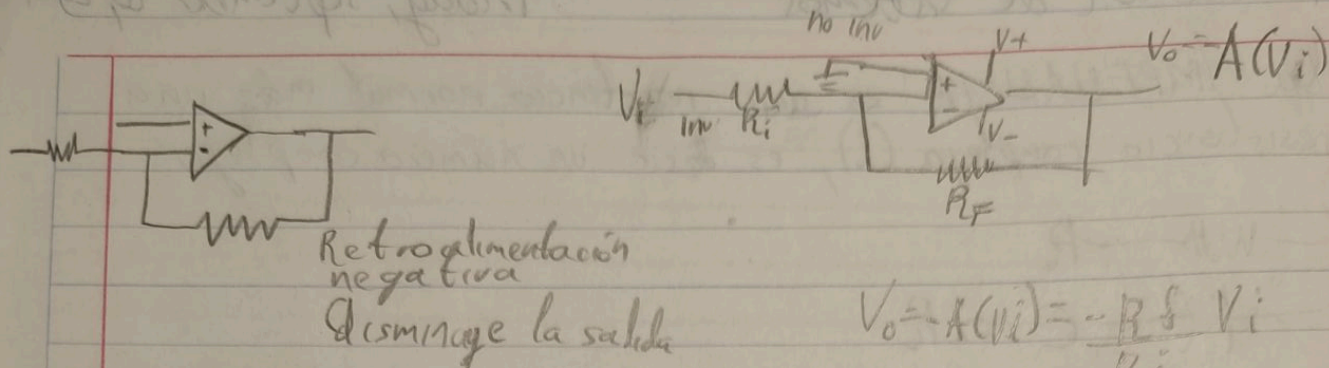 no inv
V+
Vo = A(Vi)
+
-
Vi
inv
Ri
+
-
V-
RF
Retroalimentación
negativa
disminuye la salida
Vo = -A(Vi) = -Rf Vi